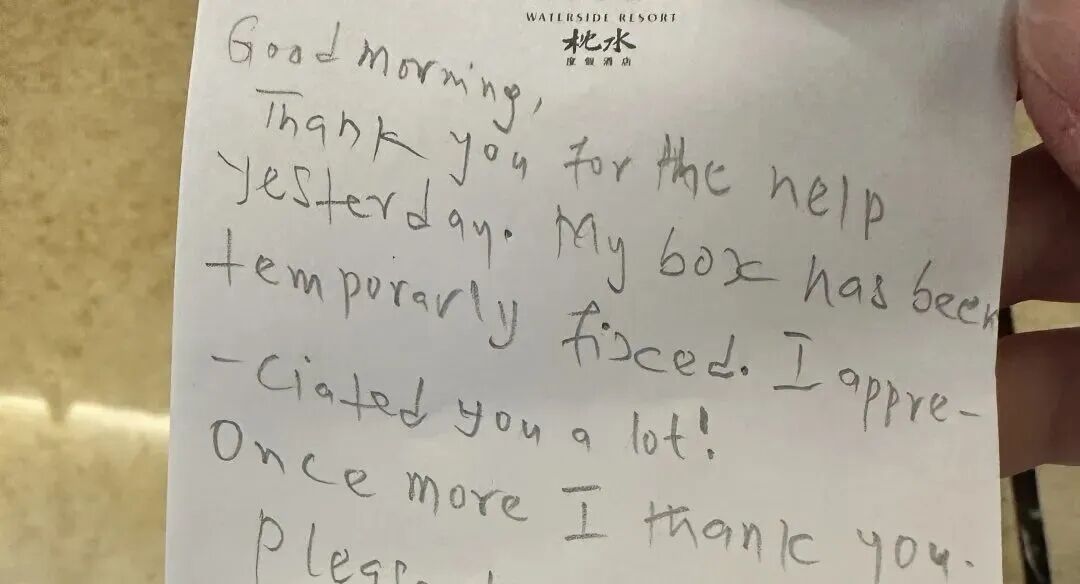 WATERSIDE RESORT
枕水
度假酒店
Good morning,
Thank you for the help
yesterday. My box has been
temporarly fixed. I appre-
-ciated you a lot!
Once more I thank you.